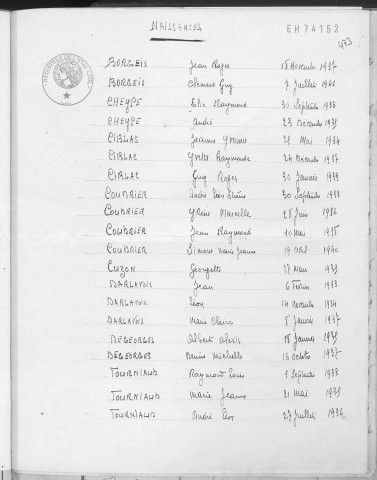 NAISSANCES
EH 74152
473
BORGEIX Jean Roger 15 Novembre 1937
BORGEIX Clément Guy 7 Juillet
CHEYPE Elie Raymond 30 Septembre 1933
CHEYPE André 23 Décembre 1935
CIBLAC Jeanne Yvonne 25 Mai 1934
CIBLAC Yvette Raymonde 24 Décembre 1937
CIBLAC Guy Roger 30 Janvier 1939
COUDRIER André 30 Septembre
COUDRIER Yvine Marcelle 25 Juin 1936
COUDRIER Jean Raymond 10 Mai 1935
COUDRIER Simone Marie Jeanne 19 Avril 1940
CUZON Georgette 27 Mars 1935
DARLAVOIX Jean 6 Février 1933
DARLAVOIX Léon 14 Novembre 1934
DARLAVOIX Marie Claire 5 Janvier 1937
DEGEORGES Albert Alexis 18 Janvier 1935
DEGEORGES Denise Michelle 16 Octobre 1937
TOURNIAUD Raymond Louis 1 Septembre 1933
TOURNIAUD Marie Jeanne 31 Mai 1935
TOURNIAUD André Léon 27 Juillet 1936